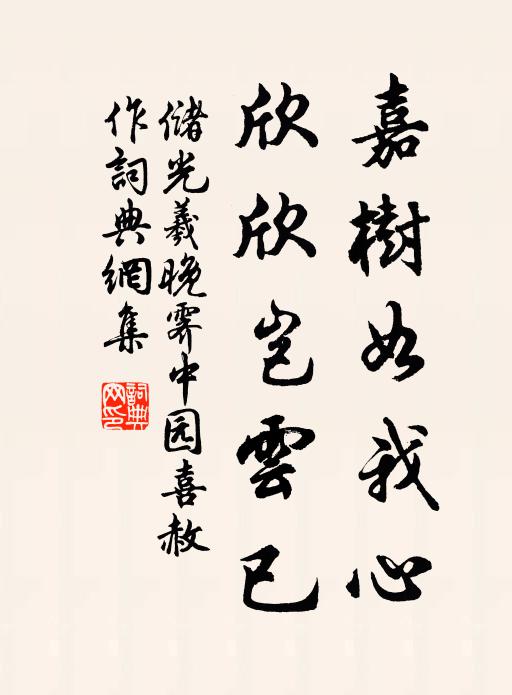 嘉樹如我心
欣欣豈雲已
儲光羲晚霽中园喜赦
作詞典網集
詞典
网印